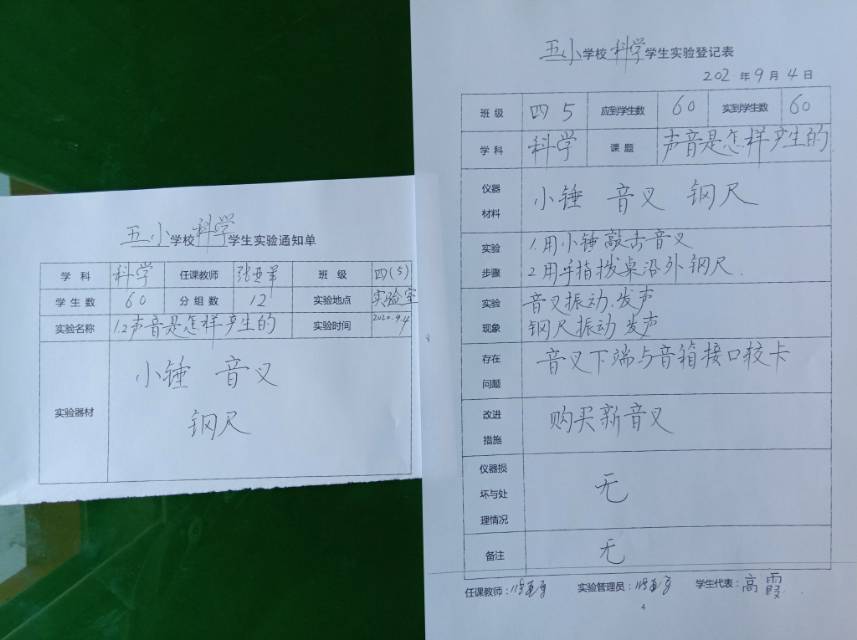 五小学校科学学生实验通知单
学科 科学 任课教师 班级 四(5)
学生数 60 分组数 12 实验地点 实验室
实验名称 1.2声音是怎样产生的 实验时间 2020.9.4
实验器材 小锤 音叉
钢尺
五小学校科学学生实验登记表
202 年9月4日
班级 四5 应到学生数 60 实到学生数 60
学科 科学 课题 声音是怎样产生的
仪器材料 小锤 音叉 钢尺
实验步骤 1.用小锤敲击音叉
2用手指拨桌沿外钢尺.
实验现象 音叉振动.发声
钢尺振动 发声
存在问题 音叉下端与音箱接口较卡
改进措施 购买新音叉
仪器损坏与处理情况 无
备注 无
任课教师: 实验管理员: 学生代表:高霞
4